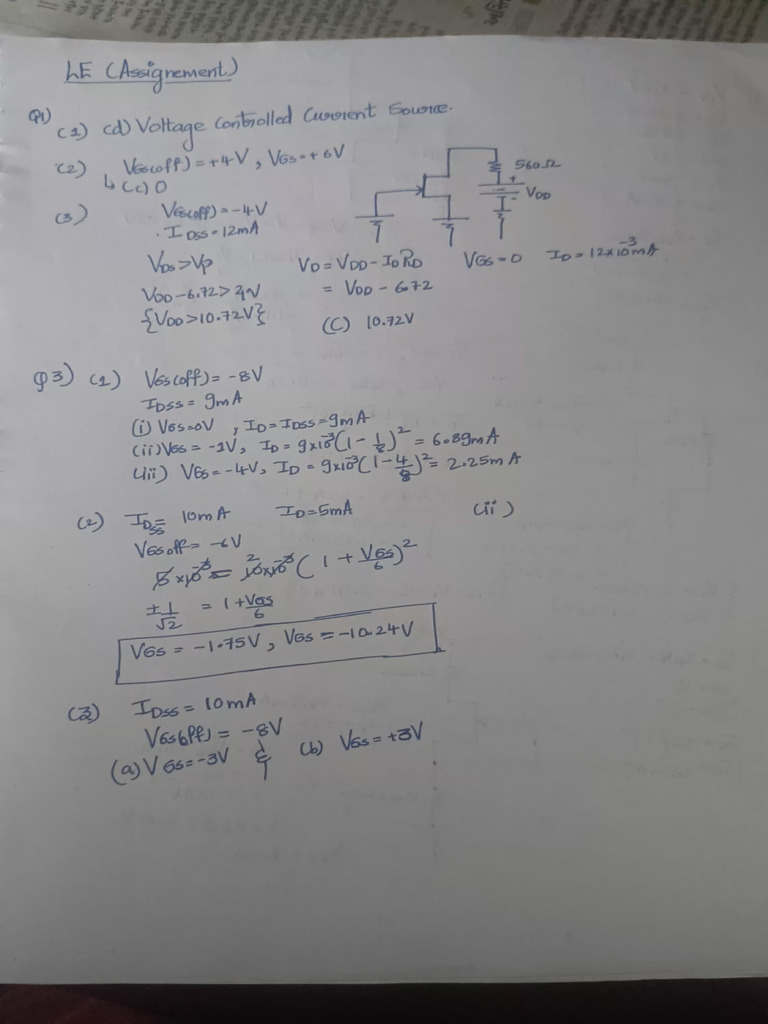 LE (Assignement)
Q1) (1) (d) Voltage Controlled Current Source.
(2) VGS(off) = +4V, VGS = +6V
↳ (c) 0
560Ω
+
-
VDD
(3) VGS(off) = -4V
IDSS = 12mA
VDS > VP VD = VDD - IDRD VGS = 0 ID = 12x10^-3 mA
VDD - 6.72 > 4V = VDD - 6.72
{VDD > 10.72V} (C) 10.72V
Q3) (1) VGS(off) = -8V
IDSS = 9mA
(i) VGS = 0V, ID = IDSS = 9mA
(ii) VGS = -1V, ID = 9x10^-3 (1 - 1/8)^2 = 6.89mA
(iii) VGS = -4V, ID = 9x10^-3 (1 - 4/8)^2 = 2.25mA
(2) IDSS = 10mA ID = 5mA (ii)
VGSoff = -6V
5x10^-3 = 10x10^-3 2 (1 + VGS/6)^2
±1/√2 = 1 + VGS/6
VGS = -1.75V, VGS = -10.24V
(3) IDSS = 10mA
VGS(off) = -8V
(a) VGS = -3V & (b) VGS = +3V